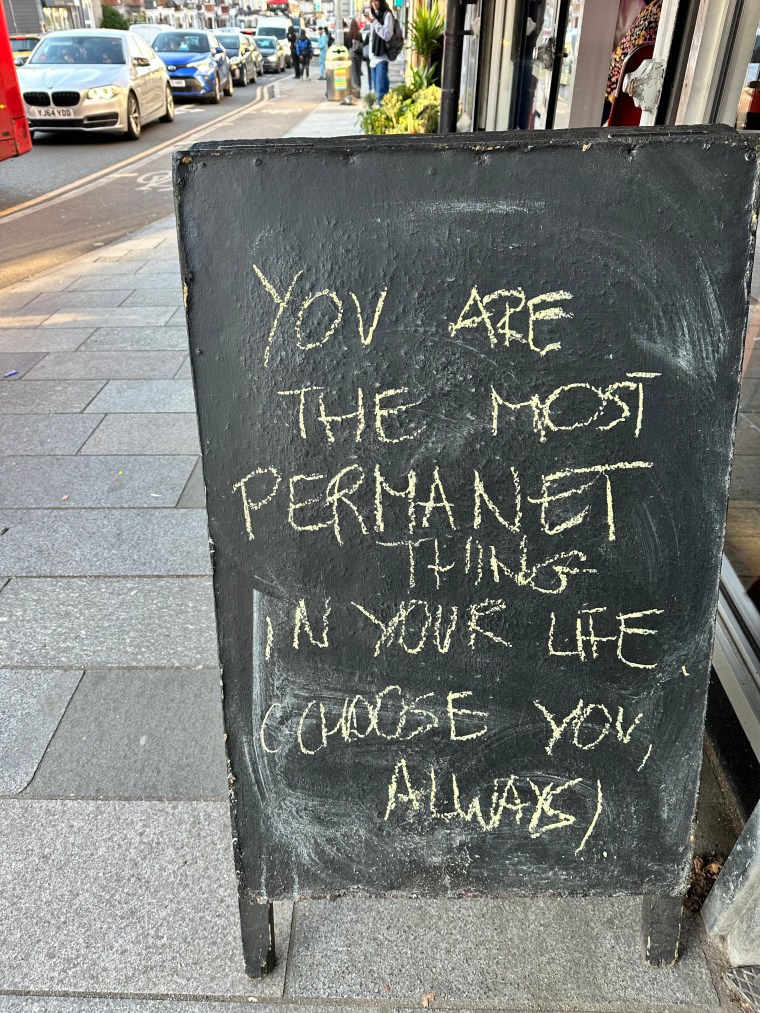 YJ64 YDD
YOU ARE
THE MOST
PERMANET
THING
IN YOUR LIFE.
(CHOOSE YOU,
ALWAYS)